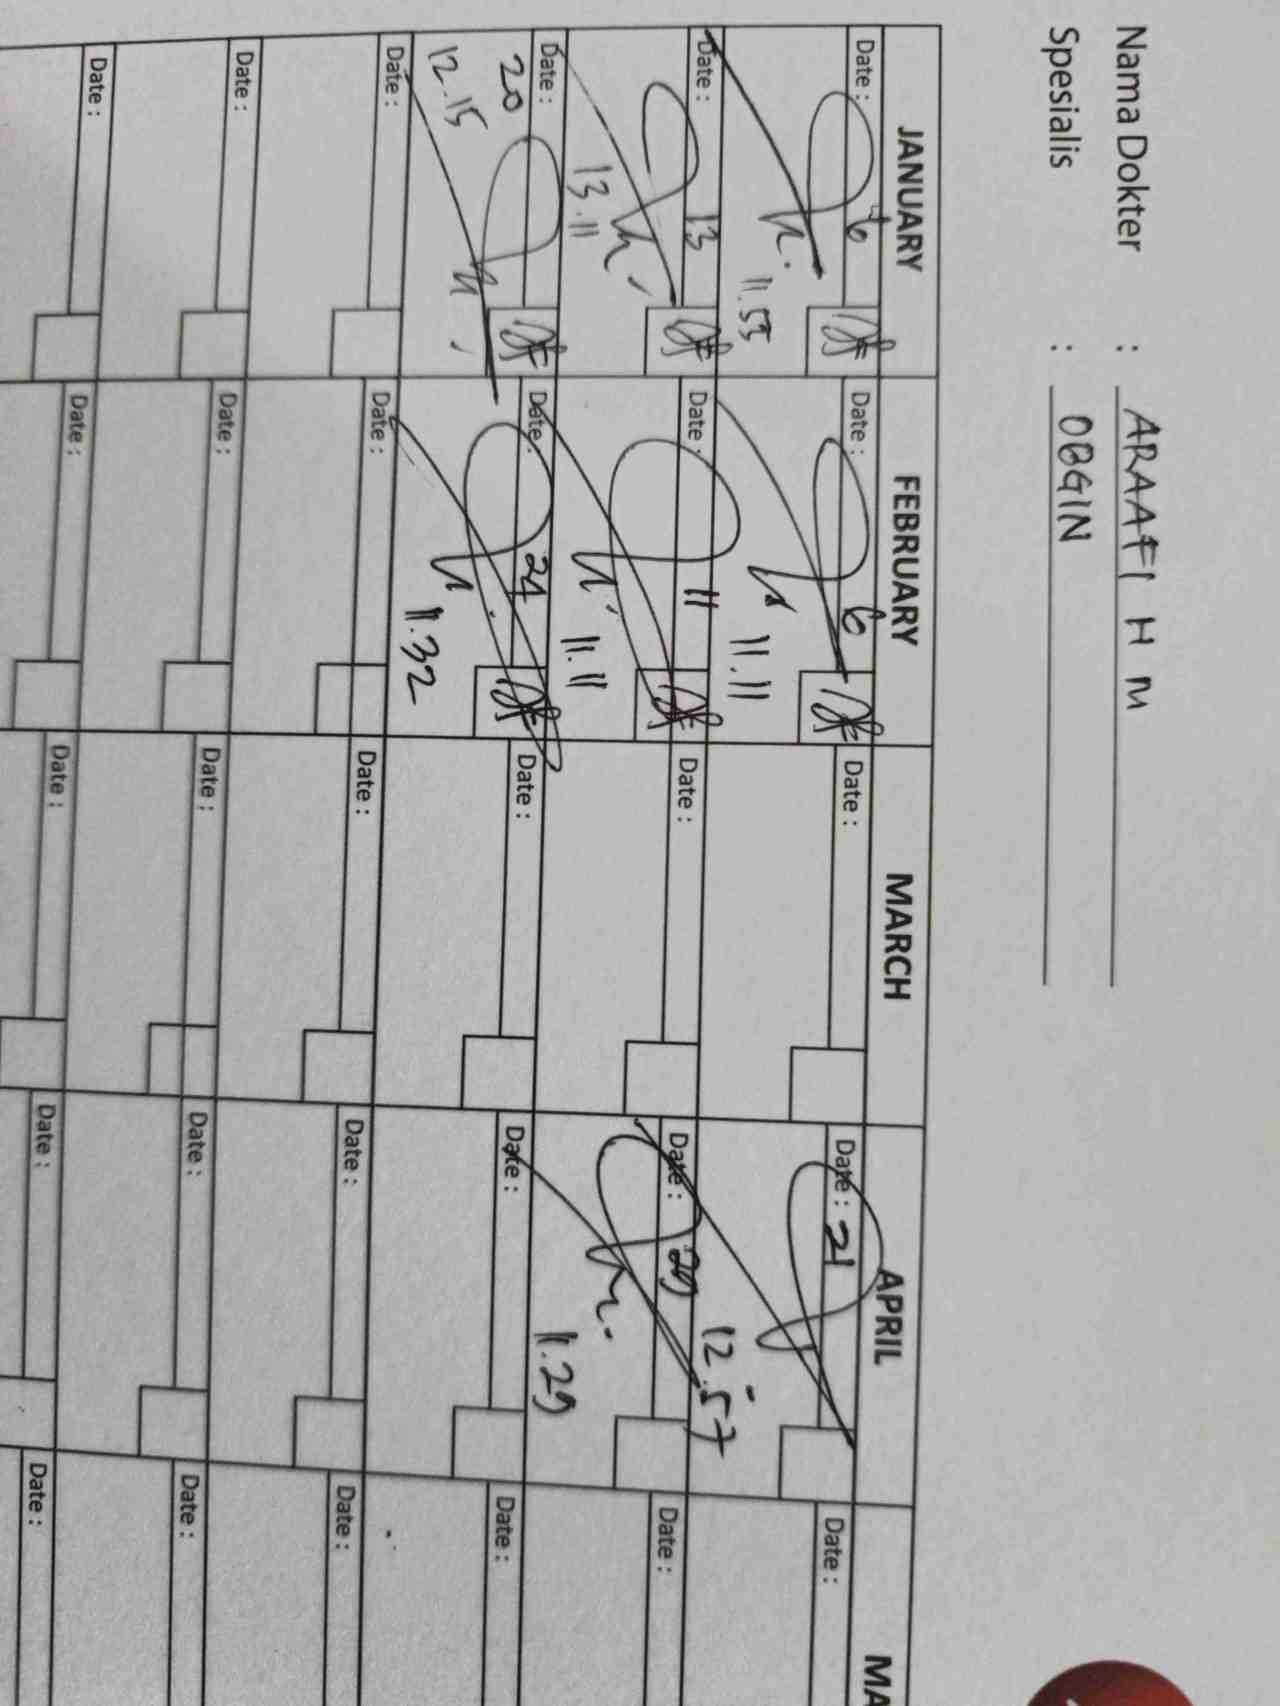 Nama Dokter : ARAAFI H M
Spesialis : OBGIN
JANUARY FEBRUARY MARCH APRIL MA
Date : 6 Date : 6 Date : Date : 21 Date :
11.53 11.11 12.57
Date : 13 Date : 11 Date : Date : 29 Date :
13.11 11.11 11.29
Date : 20 Date : 24 Date : Date : Date :
12.15 11.32
Date : Date : Date : Date : Date :
Date : Date : Date : Date : Date :
Date : Date : Date : Date : Date :